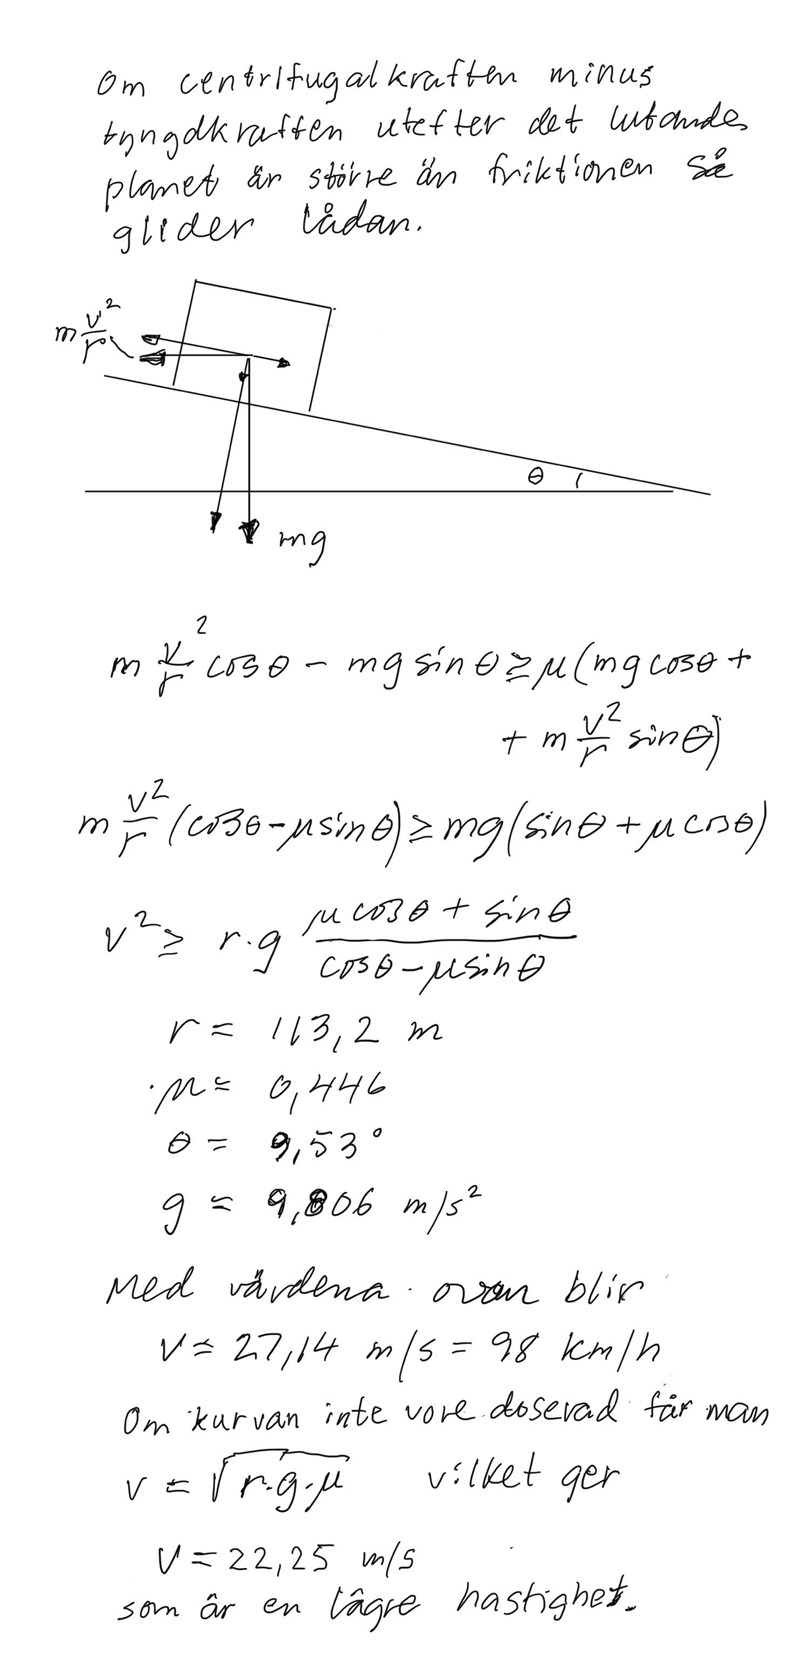 Om centrifugalkraften minus
tyngdkraften utefter det lutande
planet är större än friktionen så
glider lådan.
m v²/r
θ
mg
m v²/r cosθ - mg sinθ ≥ μ(mg cosθ +
+ m v²/r sinθ)
m v²/r (cosθ - μ sinθ) ≥ mg(sinθ + μ cosθ)
v² ≥ r·g (μ cosθ + sinθ)/(cosθ - μ sinθ)
r = 113,2 m
μ = 0,446
θ = 9,53°
g = 9,806 m/s²
Med värdena ovan blir
v = 27,14 m/s = 98 km/h
Om kurvan inte vore doserad får man
v = √(r·g·μ) vilket ger
v = 22,25 m/s
som är en lägre hastighet.